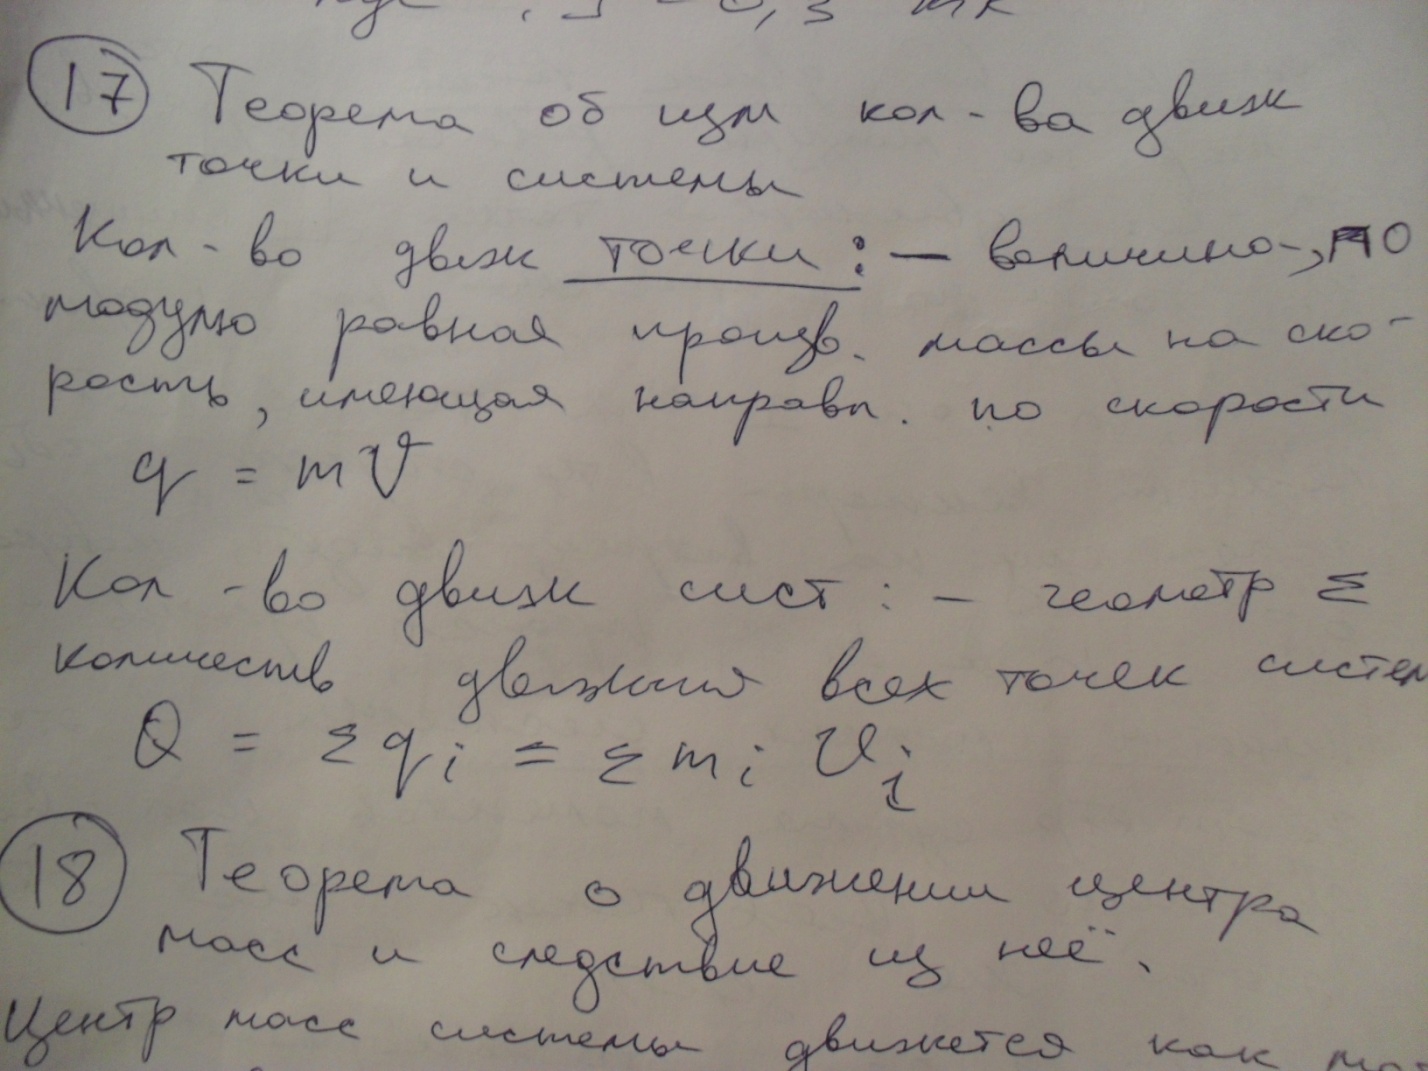 17 Теорема об изм кол-ва движ
точки и системы
Кол-во движ точки: — величина, по
модулю равная произв. массы на ско-
рость, имеющая направл. по скорости
q = mV
Кол-во движ сист: — геометр Σ
количеств движения всех точек систем
Q = Σqi = Σmi Vi
18 Теорема о движении центра
масс и следствие из неё.
Центр масс системы движется как